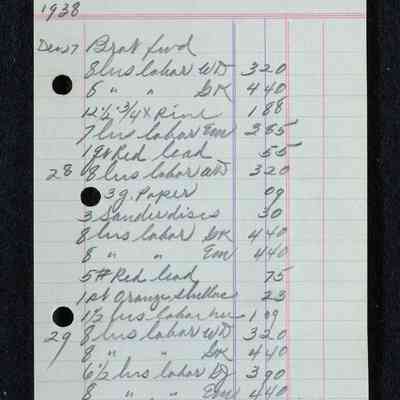 1938
Dec 27 Brot fwd
8 hrs labor WD 3 20
8 " " GK 4 40
12 1/2' 3/4 x Pine 1 88
7 hrs labor Em 3 85
1 qt Red lead 55
28 8 hrs labor WD 3 20
3 g. Paper 09
3 Sander discs 30
8 hrs labor GK 4 40
8 " " Em 4 40
5# Red lead 75
1 pt Orange Shellac 23
1 1/2 hrs labor 1 09
29 8 hrs labor WD 3 20
8 " " GK 4 40
6 1/2 hrs labor 3 90
8 " " Em 4 40